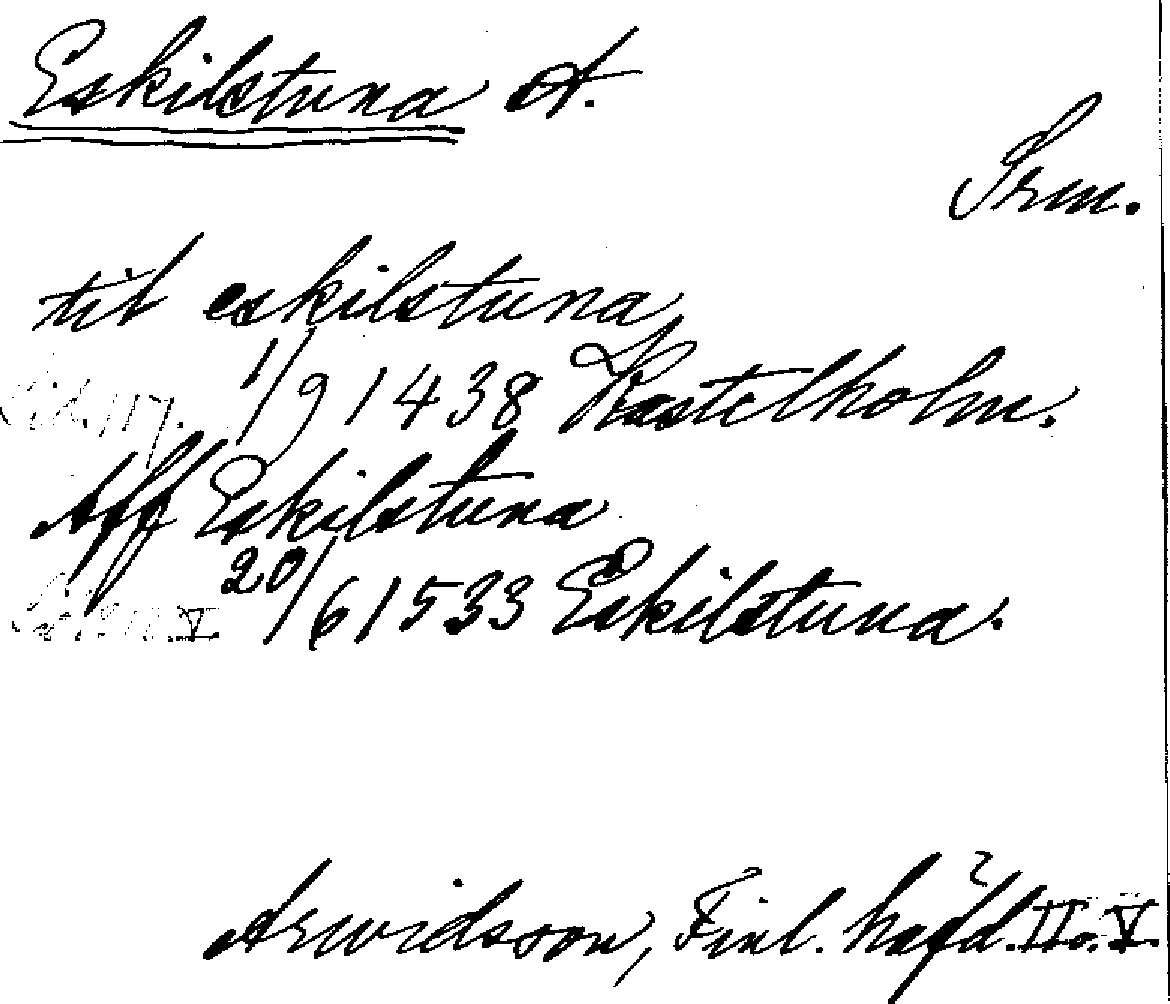 Eskilstuna st.
Srm.
til eskilstuna
1/9 1438 Kastelholm.
Aff Eskilstuna
20/6 1533 Eskilstuna.
Arwidsson, Finl. häfd. II o. V.